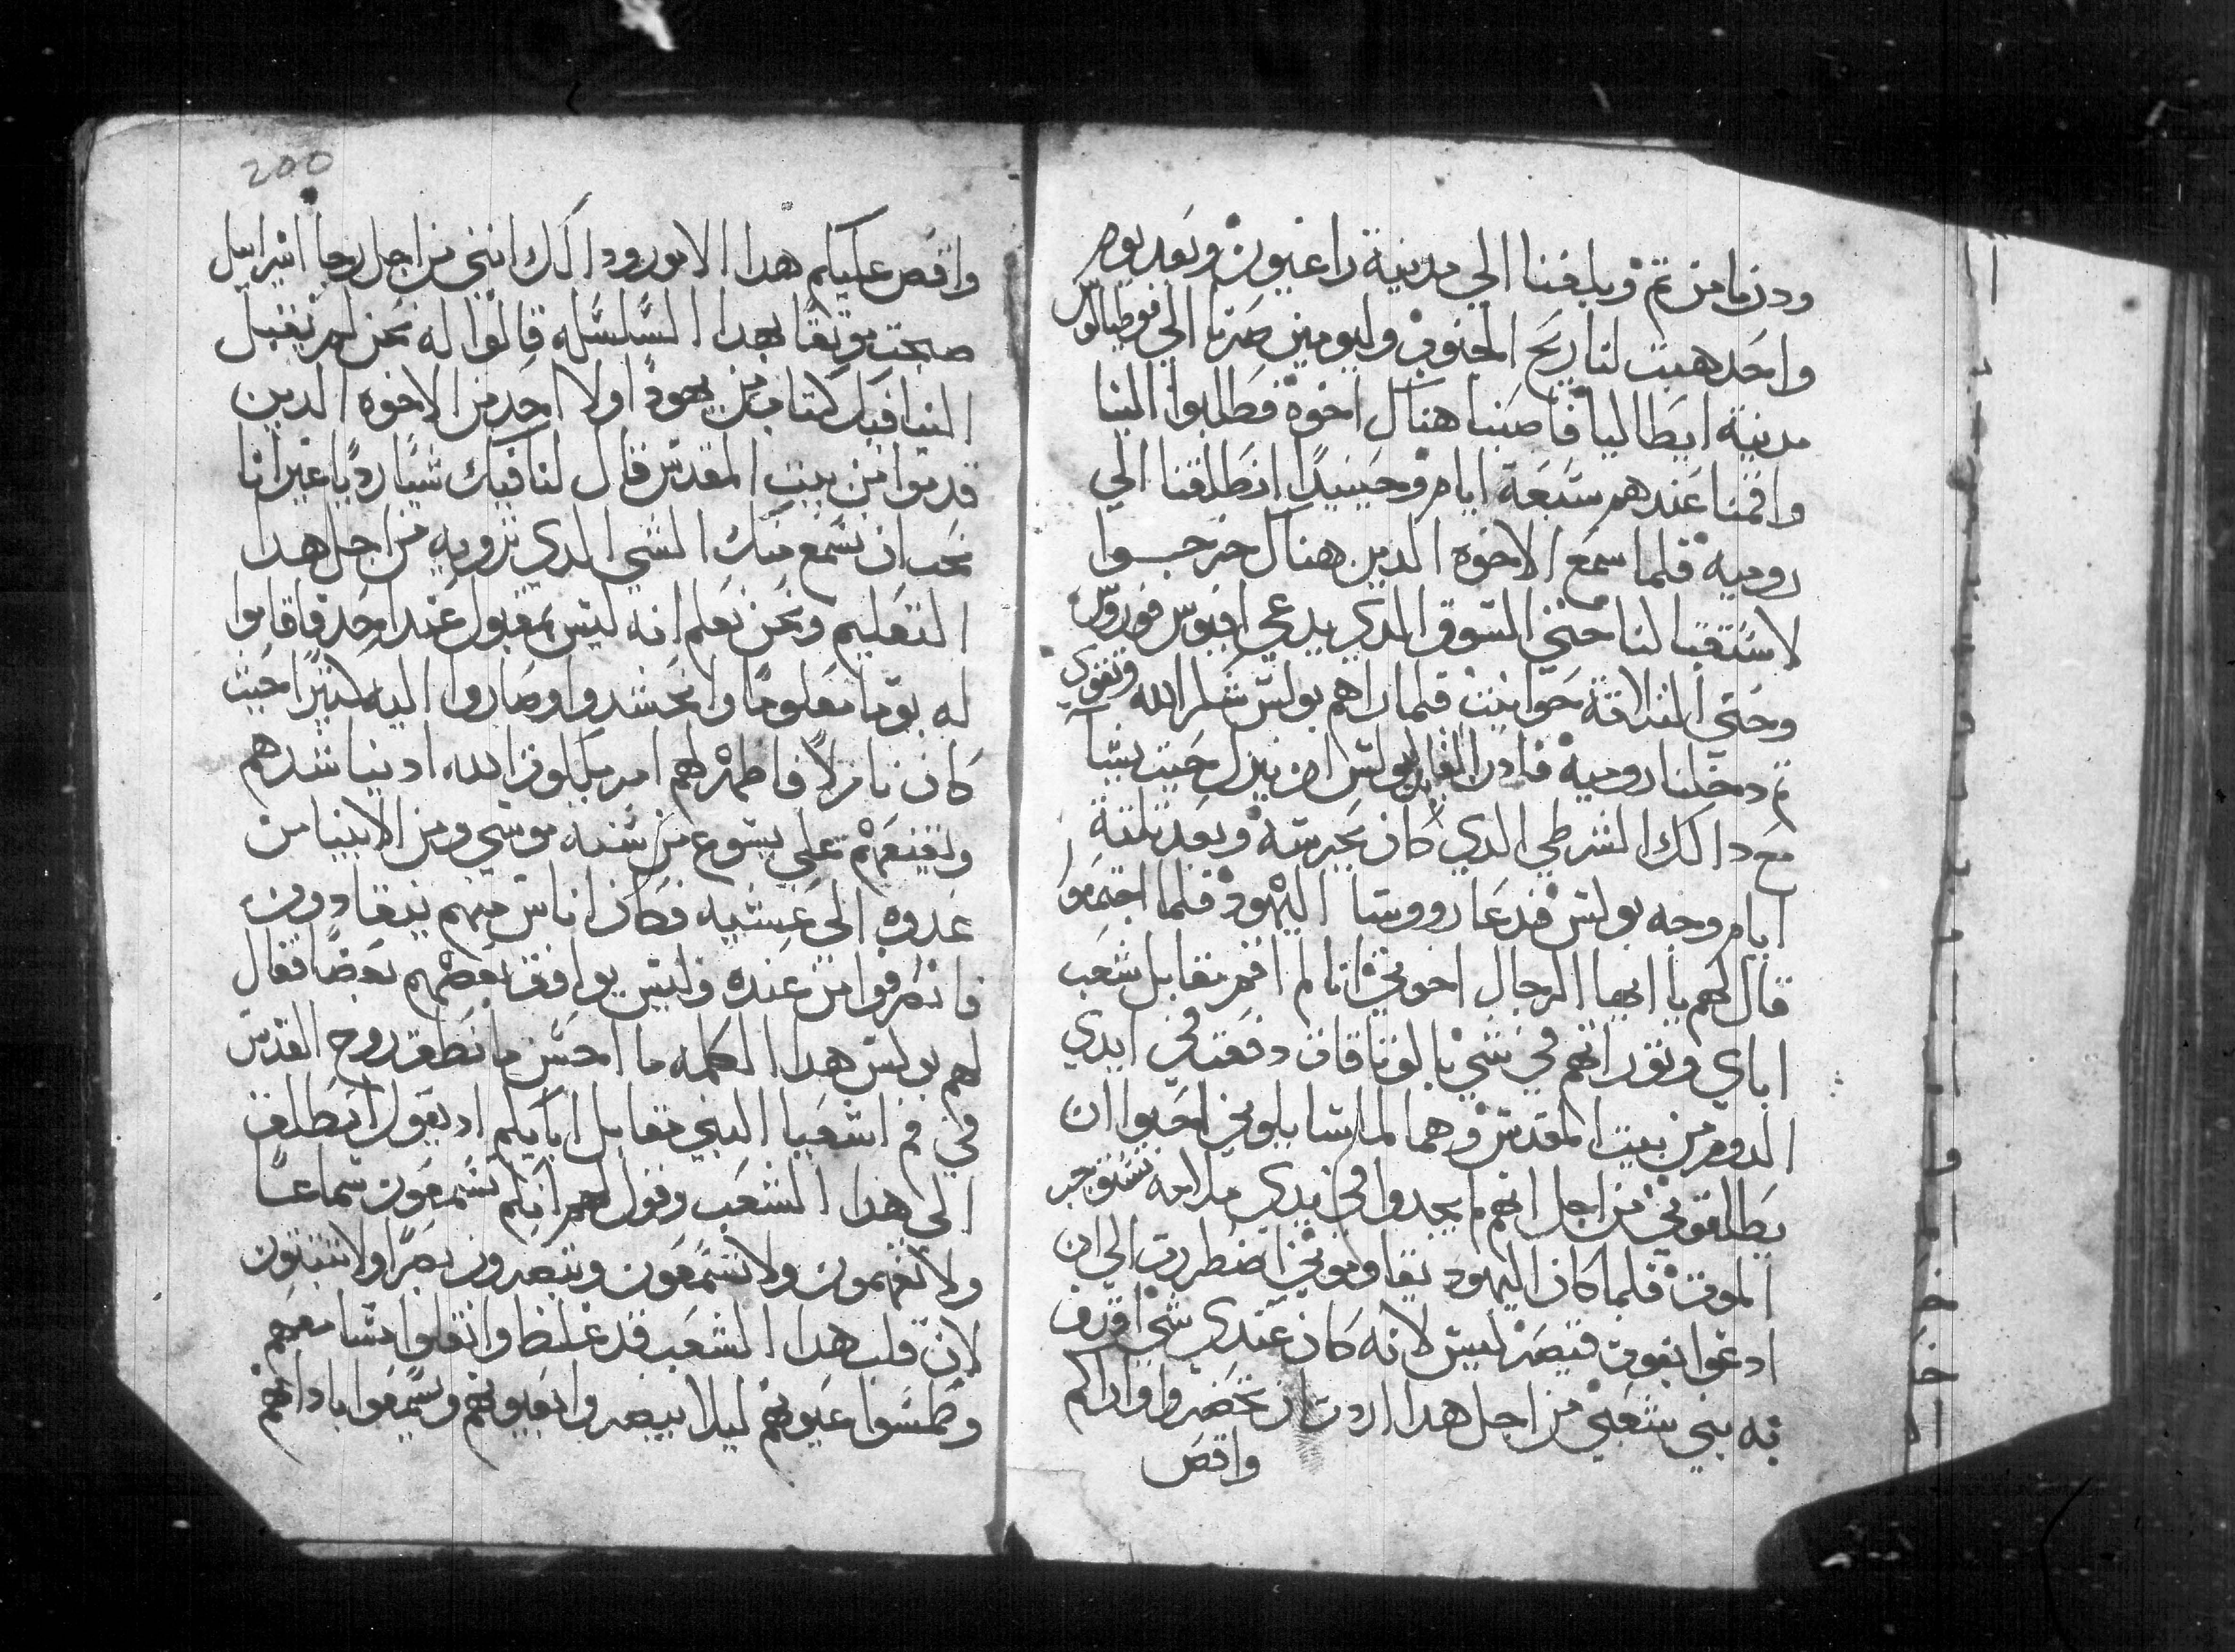 ودرنا من تم وبلغنا الي مدينة راغيون وبعد يوم
واحد هبت لنا ريح الجنوب وليومين صرنا الي فوطيالوس
مدينة ايطاليا فاصبنا هناك اخوة فطلبوا الينا
واقمنا عندهم سبعة ايام وحينيدا انطلقنا الي
رومية فلما سمع الاخوه الدين هناك خرجوا
لاستقبالنا حتي السوق الدي يدعي افيوس فوروس
وحتي الثلاثة حوانيت فلما راهم بولس شكر الله وتقوي
تم دخلنا رومية فادن القايد لبولس ان ينزل حيث يشا
مع دالك الشرطي الدي كان يحرسه وبعد ثلثة
ايام وجه بولس فدعا رووسا اليهود فلما اجتمعوا
قال لهم يا ايها الرجال اخوتي انا لم اقم مقابل شعب
اباي وتوراتهم في شي بالوثاقات دفعت في ايدي
الروم من بيت المقدس وهم لما سايلوني احبوا ان
يطلقوني من اجل انهم لم يجدوا في يدي ملامه تستوجب
الموت فلما كان اليهود يقاوموني اضطررت الي ان
ادعوا بغوت قيصر ليس لانه كان عندي شي اقرف
به بني شعبي من اجل هدا اردت ان تحضروا واراكم
واقص
200
واقص عليكم هدا الامور ودالك انني من اجل رجا اسراييل
صبحت موتقا بهدا السلسله قالوا له نحن لم نقبل
الينا فيك كتاب من يهودا ولا احد من الاخوه الدين
قدموا من بيت المقدس قال لنا فيك شيا رديا غير انا
نحب ان نسمع منك الشي الدي ترويه من اجل هدا
التعليم ونحن نعلم انه ليس بمقبول عند احد فاقاموا
له يوما معلوما وانحشدوا وصاروا اليه كثيرا حيث
كان نازلا فاظهر لهم امر ملكوت الله اد يناشدهم
ويقنعهم علي يسوع من سنه موسي ومن الانبيا من
غدوه الي عشيه فكان اناس منهم ينقادون
فانصرفوا من عنده وليس يوافق بعضهم بعضا فقال
لهم بولس هدا الكلمه ما احسن ما نطق روح القدس
في فم اشعيا النبي مقابل ابايكم اد يقول انطلق
الي هدا الشعب وقول لهم انكم تسمعون سماعا
ولا تفهمون ولا تسمعون وتبصرون بصرا ولا تتبتون
لان قلب هدا الشعب قد غلظ واثقلوا مسامعهم
وطمسوا عيونهم ليلا يبصروا بعيونهم ويسمعوا بادانهم